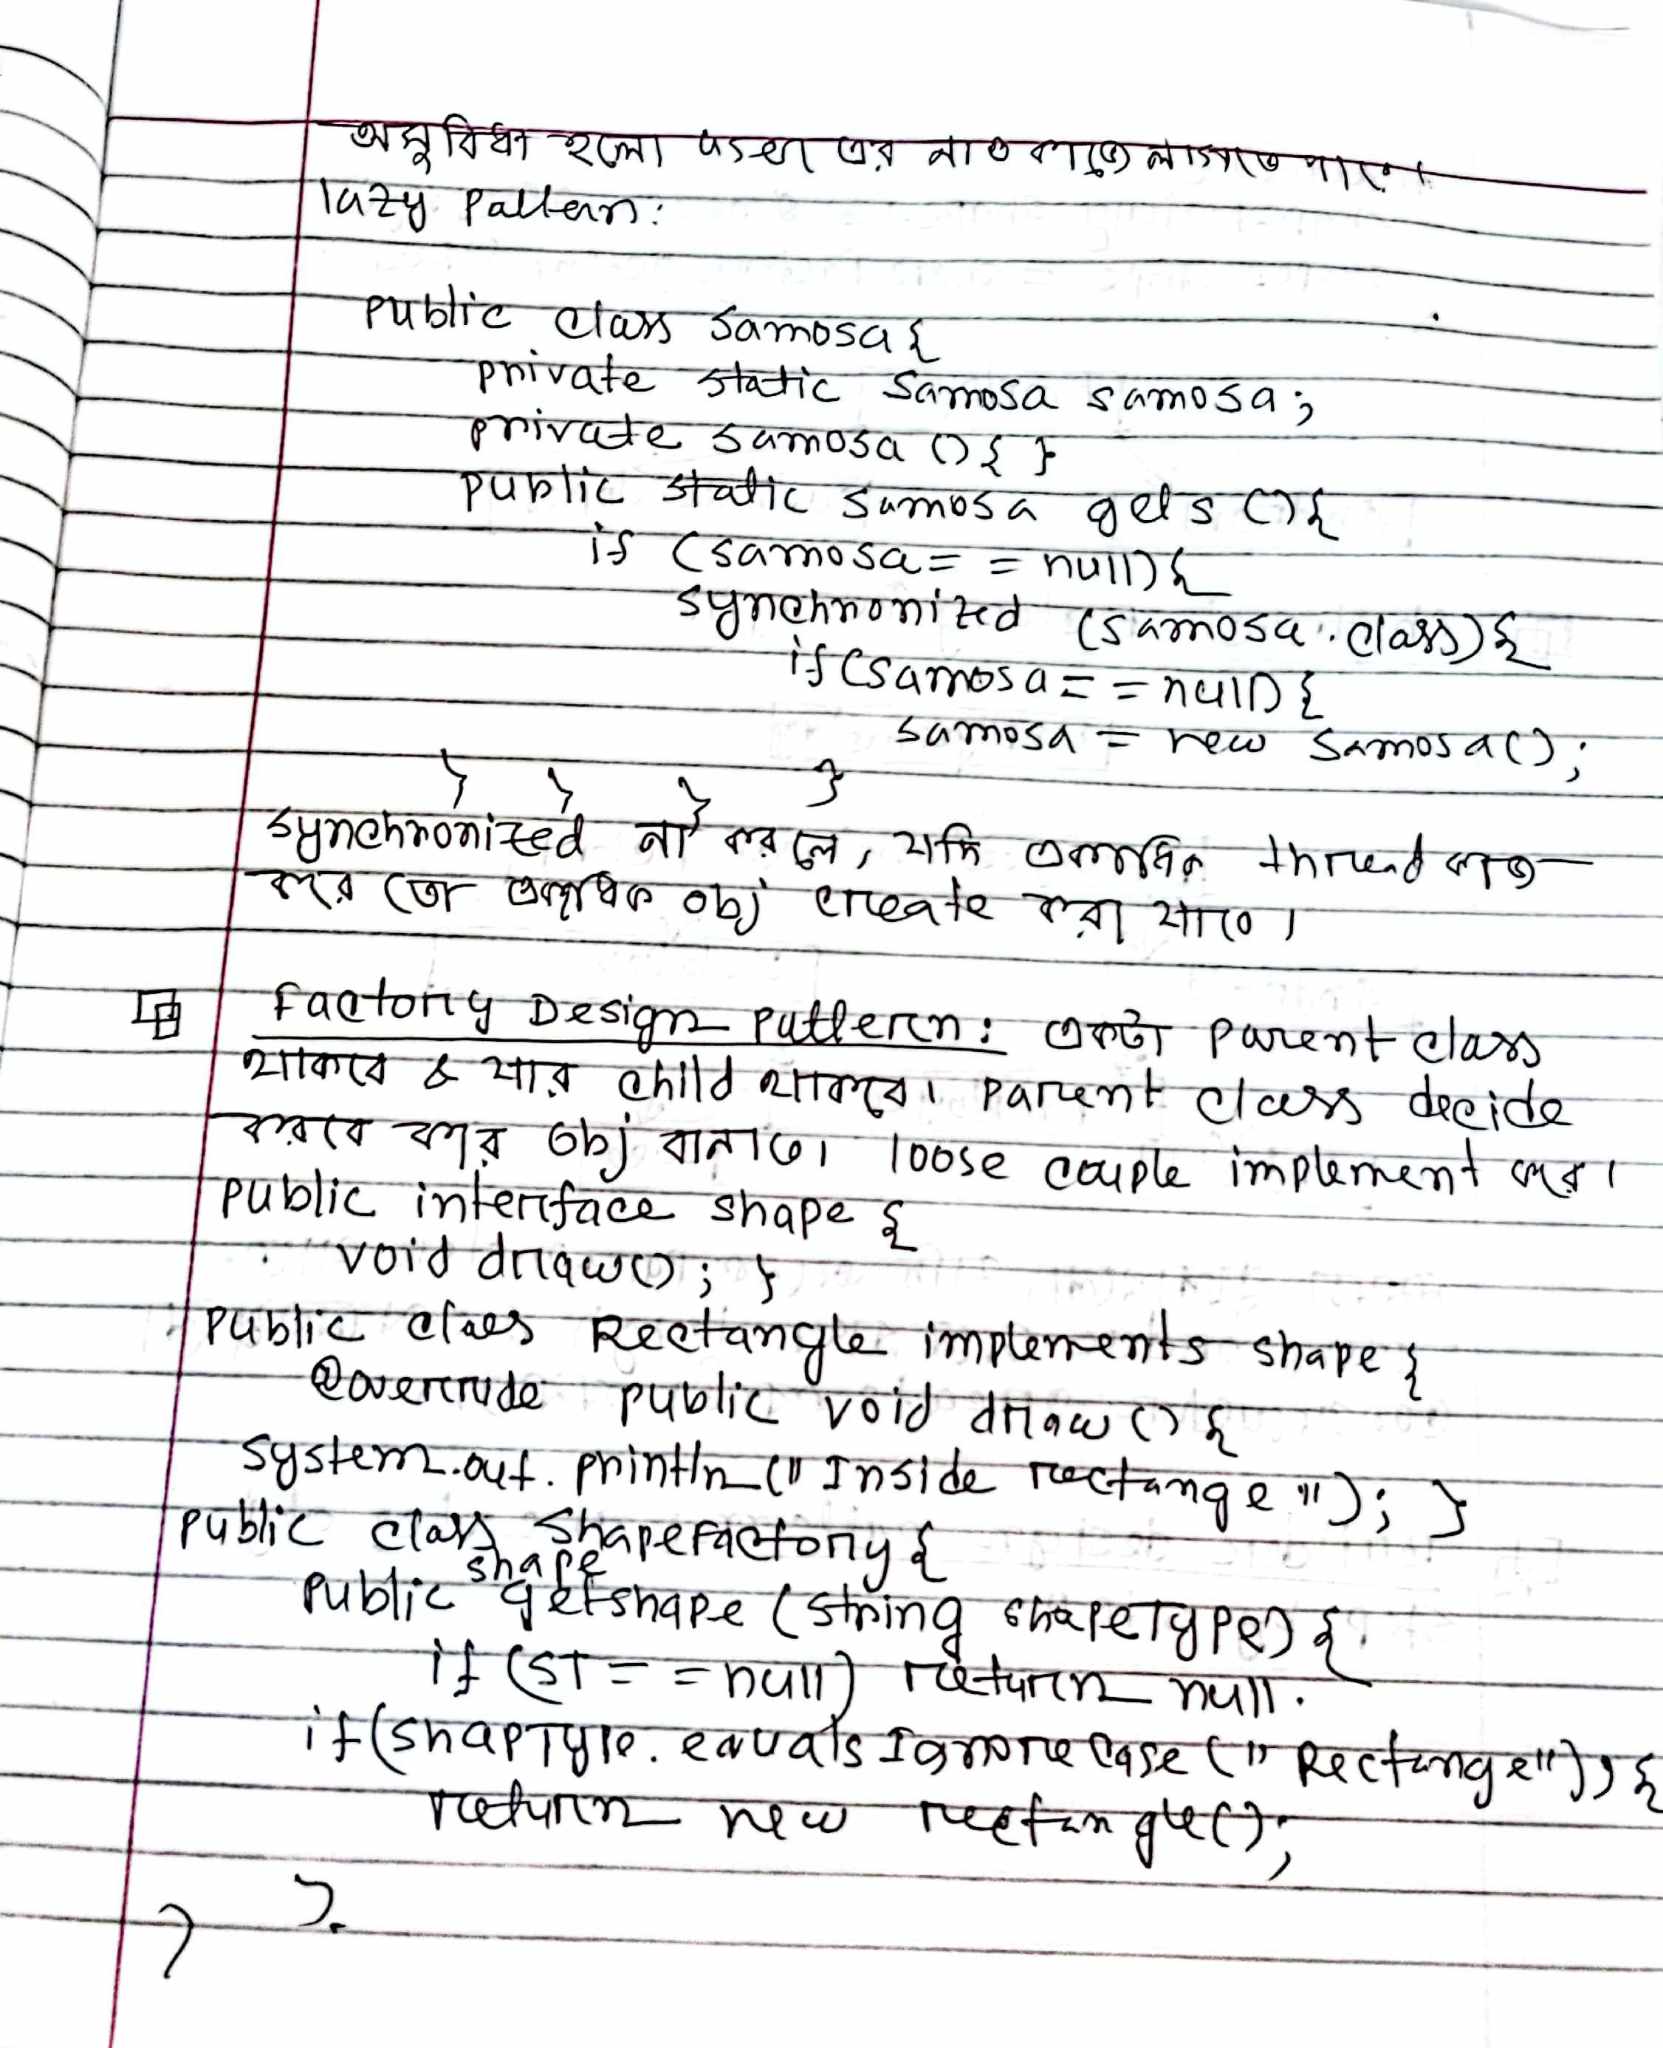 অসুবিধা হলো user এর নাও কাজে লাগতে পারে।
lazy pattern:
public class samosa {
private static Samosa samosa;
private samosa () { }
public static samosa gets () {
if (samosa = = null) {
synchronized (samosa.class) {
if (samosa = = null) {
samosa = new samosa();
} } } }
}
synchronized না করলে, যদি একাধিক thread কাজ
করে তো একাধিক obj create করা যাবে।
Factory Design Pattern: একটা parent class
থাকবে & যার child থাকবে। parent class decide
করবে কার obj বানাতে। loose couple implement করে।
public interface shape {
void draw(); }
public class Rectangle implements shape {
@overrude public void draw () {
system.out.println ("Inside rectange"); }
public class shapefactory {
shape
public getshape (string shapeType) {
if (ST = = null) return null.
if (shapType.equalsIgnoreCase ("Rectange")) {
return new rectangle();
}
}